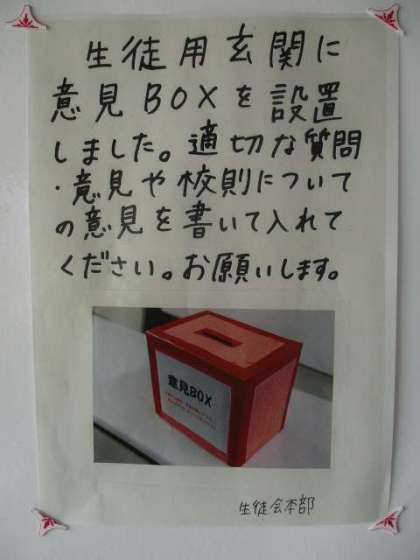 生徒用玄関に
意見BOXを設置
しました。適切な質問
・意見や校則について
の意見を書いて入れて
ください。お願いします。
意見BOX
生徒会本部